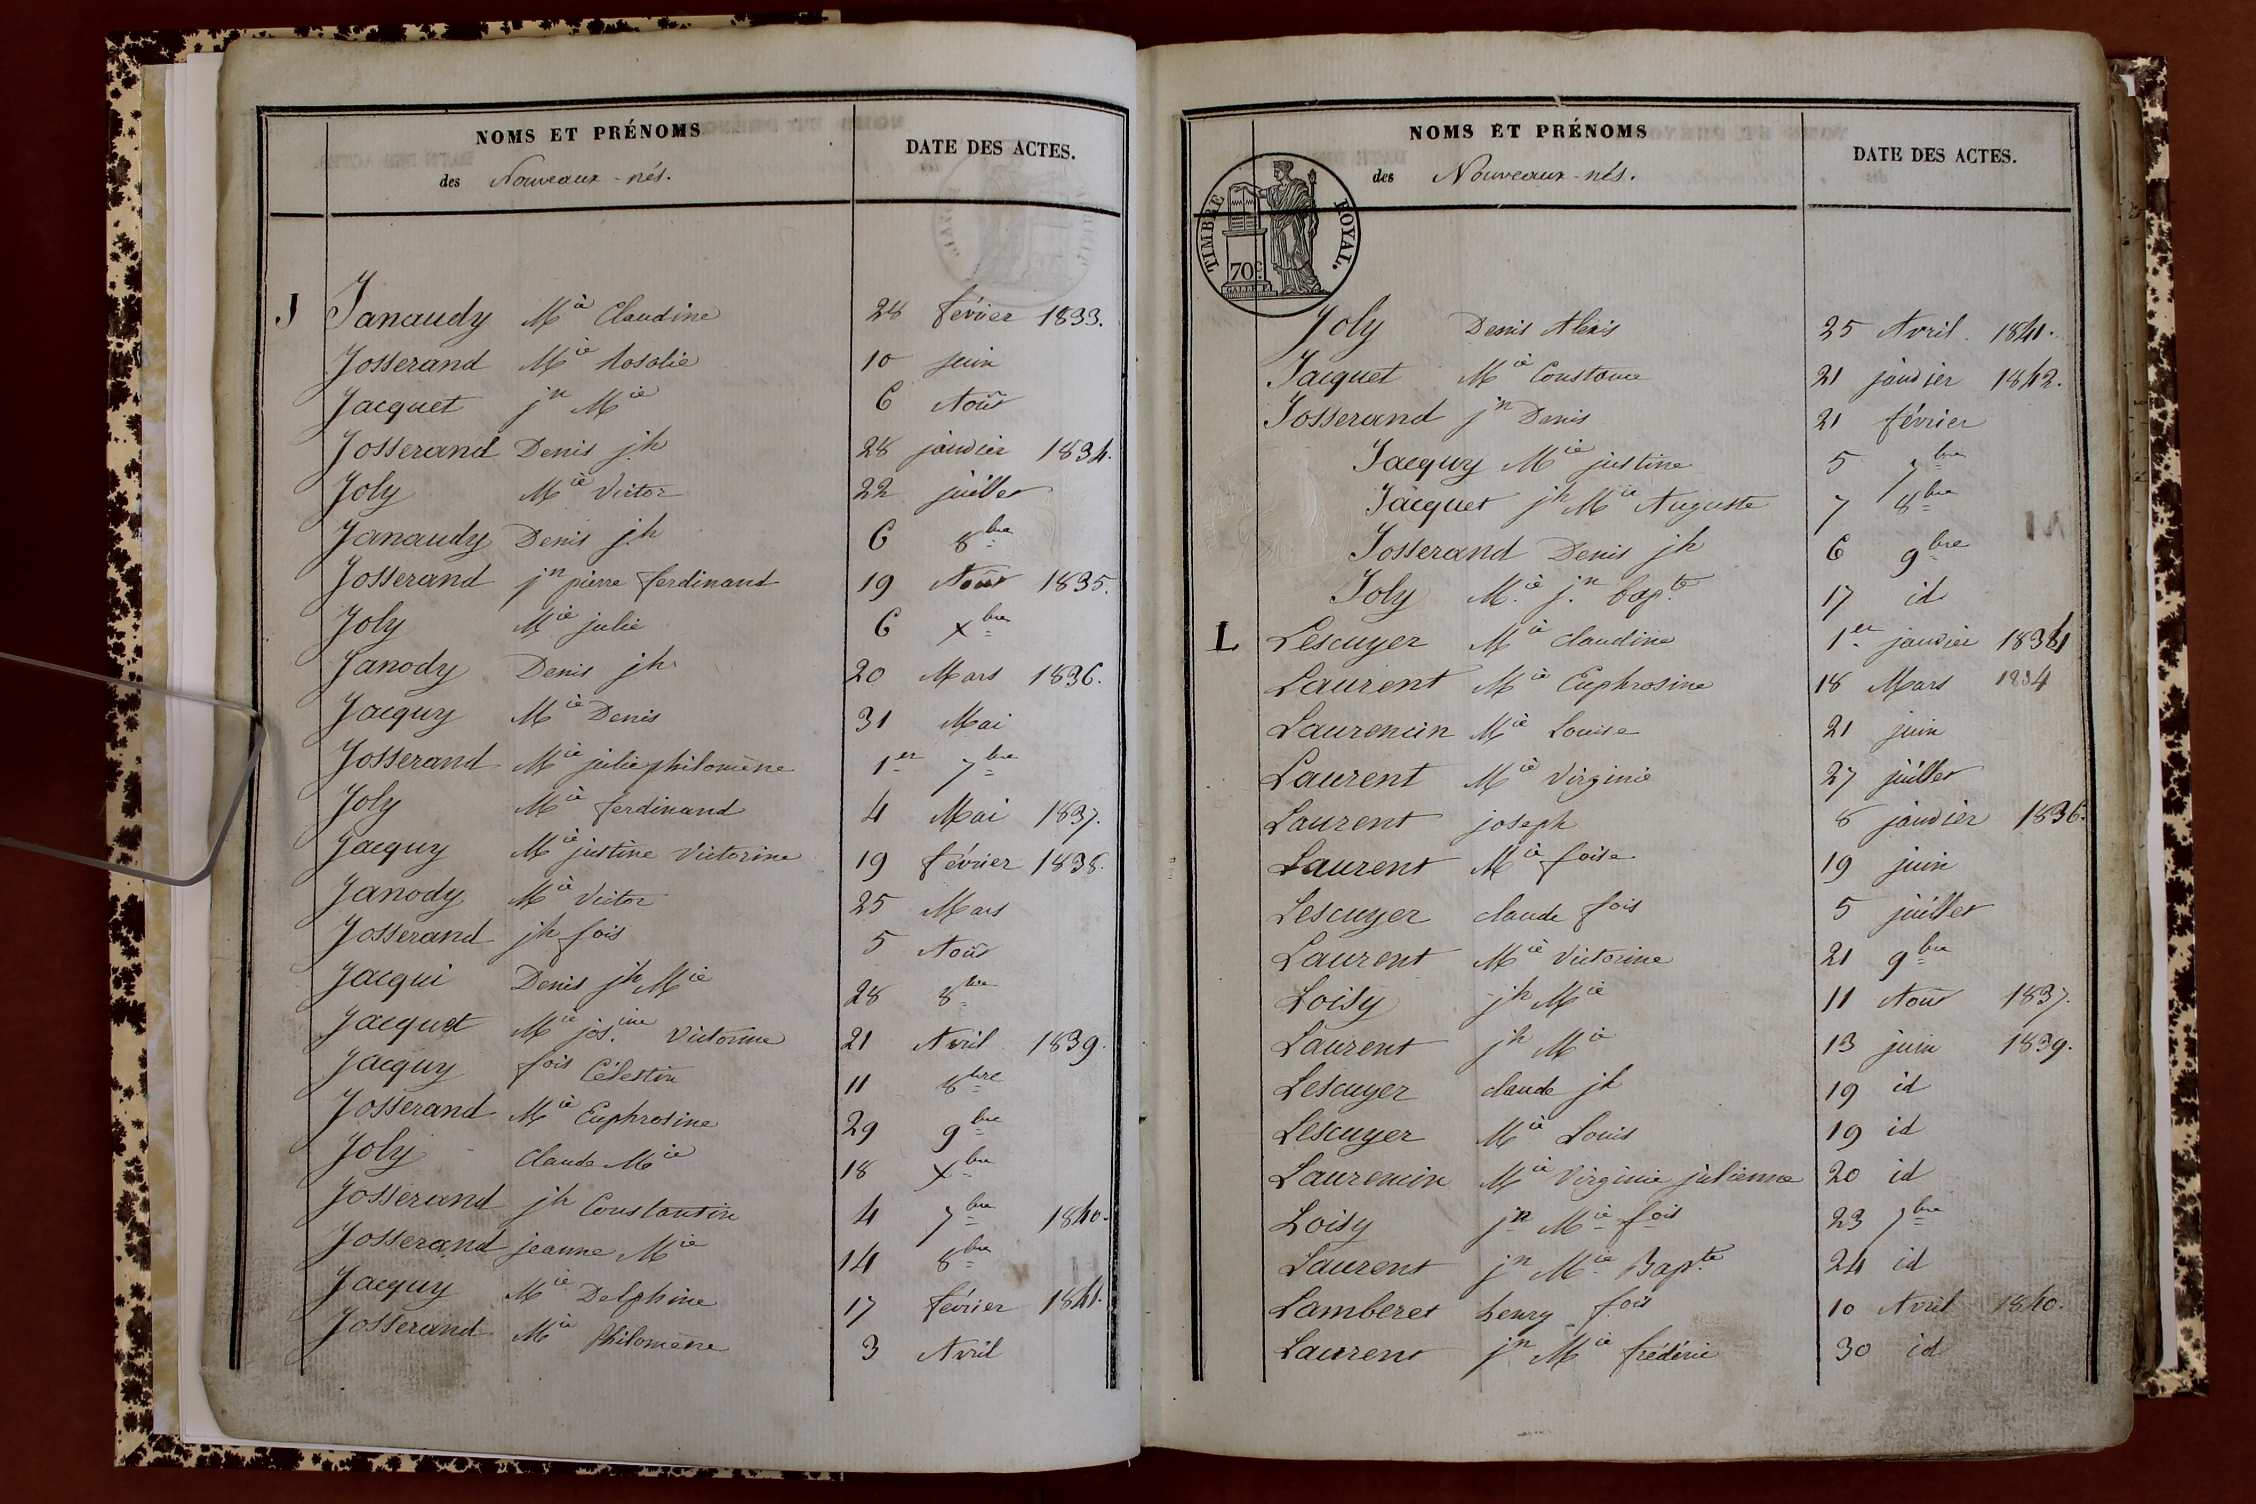 NOMS ET PRÉNOMS
des Nouveaux-nés.
DATE DES ACTES.
J Janaudy Mie Claudine 28 février 1833.
Josserand Mie Rosalie 10 juin
Jacquet jn Mie 6 Août
Josserand Denis jh 28 janvier 1834.
Joly Mie Victor 22 juillet
Janaudy Denis jh 6 8bre
Josserand jn pierre ferdinand 19 Août 1835.
Joly Mie julie 6 Xbre
Janody Denis jh 20 Mars 1836.
Jacquy Mie Denis 31 Mai
Josserand Mie julie philomène 1er 7bre
Joly Mie ferdinand 4 Mai 1837.
Jacquy Mie justine Victorine 19 février 1838.
Janody Mie Victor 25 Mars
Josserand jh fois 5 Août
Jacqui Denis jh Mie 28 8bre
Jacquet Mie jos.ine Victorine 21 Avril 1839.
Jacquy fois Célestin 11 8bre
Josserand Mie Euphrosine 29 9bre
Joly Claude Mie 18 Xbre
Josserand jh Constantin 4 7bre 1840.
Josserand jeanne Mie 14 8bre
Jacquy Mie Delphine 17 février 1841.
Josserand Mie philomène 3 Avril
NOMS ET PRÉNOMS
des Nouveaux-nés.
DATE DES ACTES.
TIMBRE ROYAL.
70c.
Joly Denis Alexis 25 Avril 1841.
Jacquet Mie Constance 21 janvier 1842.
Josserand jn Denis 21 février
Jacquy Mie justine 5 7bre
Jacquet jh Mie Auguste 7 8bre
Josserand Denis jh 6 9bre
Joly Mie j.n bap.te 17 id
L Lescuyer Mie Claudine 1er janvier
Laurent Mie Euphrosine 18 Mars 1834
Laurencin Mie Louise 21 juin
Laurent Mie Virginie 27 juillet
Laurent joseph 8 janvier 1836.
Laurent Mie foise 19 juin
Lescuyer claude fois 5 juillet
Laurent Mie Victorine 21 9bre
Loisy jh Mie 11 Août 1837.
Laurent jh Mie 13 juin 1839.
Lescuyer claude jh 19 id
Lescuyer Mie Louis 19 id
Laurencin Mie Virginie julienne 20 id
Loisy jn Mie fois 23 7bre
Laurent jn Mie Bap.te 24 id
Lamberet henry fois 10 Avril 1840.
Laurent jn Mie frédéric 30 id